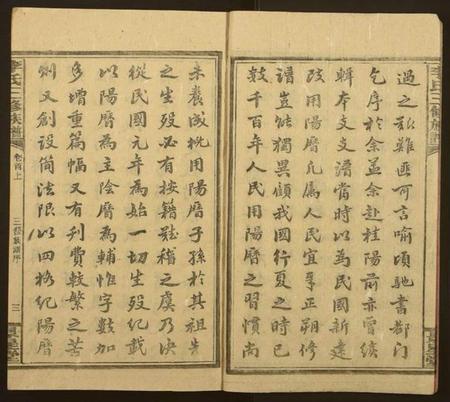 過之艱難匪可言喻頃馳書都門
乞序於余並余赴桂陽前亦曾續
輯本支支譜當時以為民國新建
改用陽曆凡屬人民宜奉正朔修
譜豈能獨異顧我國行夏之時已
數千百年人民用陽曆之習慣尚
未養成梲用陽曆子孫於其祖先
之生歿必有按籍難稽之虞乃決
從民國元年為始一切生歿紀載
以陽曆為主陰曆為輔惟字數加
多增重篇幅又有刋費較繁之苦
則又創設簡法限以四格紀陽曆
李氏三修族譜
卷首上
三修族譜序
三